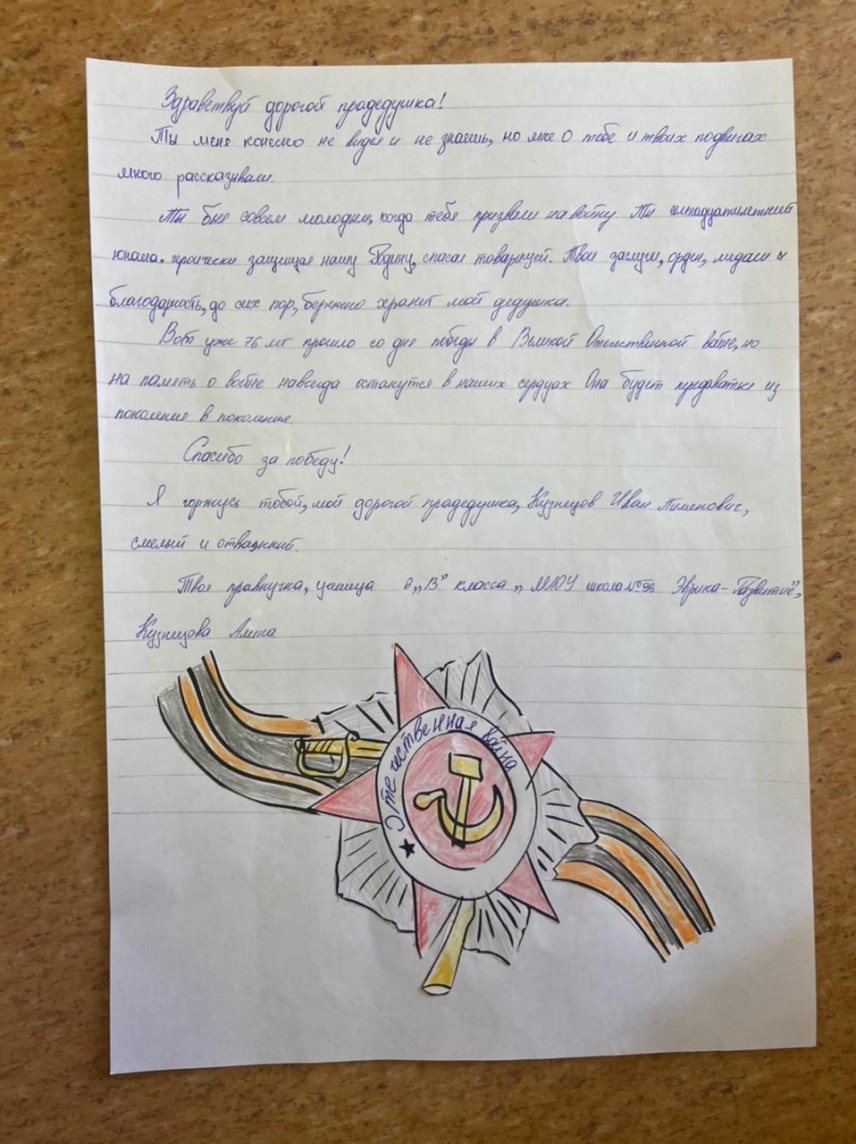 Здравствуй дорогой прадедушка!
Ты меня конечно не видел и не знаешь, но мне о тебе и твоих подвигах
много рассказывали.
Ты был совсем молодым, когда тебя призвали на войну. Ты семнадцатилетний
юноша, героически защищал нашу Родину, спасал товарищей. Твои заслуги, орден, медали и
благодарность, до сих пор, бережно хранит мой дедушка.
Вот уже 76 лет прошло со дня победы в Великой Отечественной войне, но
на память о войне навсегда останутся в наших сердцах. Она будет предаваться из
поколения в поколение.
Спасибо за победу!
Я горжусь тобой, мой дорогой прадедушка, Кузнецов Иван Пименович,
смелый и отважный.
Твоя правнучка, ученица "В" класса „ МАОУ школа № 96 Эврика-Развитие",
Кузнецова Алина
Отечественная война